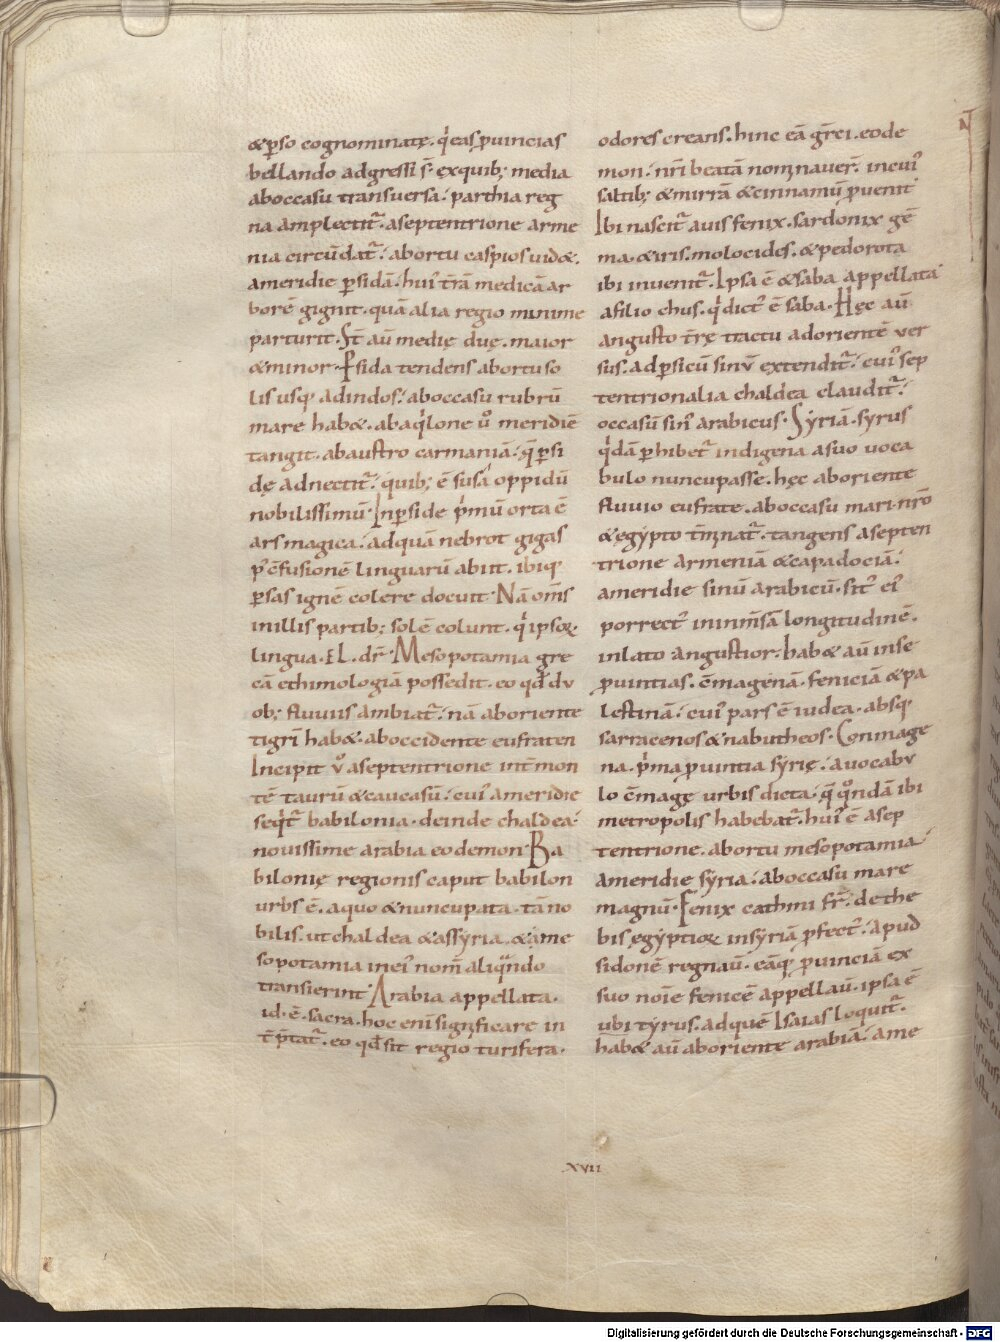 &perso cognominatę. q'eas puincias
bellando adgressi s̄. exquib; media
aboccasu transuersa. parthia reg
na amplectit̄. aseptentrione arme
nia circūdat̄. abortu caspios uid&.
ameridie psidā. hui' t̄rā medicā ar
borē gignit. quā alia regio minime
parturit. St̄ aū medię duę. maior
&minor. Psida tendens abortu so
lis usq; adindos. aboccasu rubrū
mare hab&. abaq'lone u° meridiē
tangit. abaustro carmaniā. q̄ psi
dę adnectit̄. quib; ē susa oppidū
nobilissimū. Inpside p'mū orta ē
ars magica. adquā nebrot gigas
p' ɔ̄fusionē linguarū abiit. ibiq;
psas ignē colere docuit. Nā om̄s
inillis partib; solē colunt. q'ipsoꝝ
lingua. EL. dr̄. Mesopotamia gre
cā ethimologiā possedit. eo qđ du
ob; fluuiis ambiat̄. nā aboriente
tigrī hab&. aboccidente eufraten
Incipit ū aseptentrione int̄ mon
tē taurū &caucasū. cui' ameridie
seqt̄ babilonia. deinde chaldea.
nouissime arabia eodemon. Ba
bilonię regionis caput babilon
urbs ē. aquo &nuncupata. tā no
bilis. ut chaldea &assyria. &ame
sopotamia inei' nom̄ aliqn̄do
transierint. Arabia appellata.
id. ē. sacra. hoc enī significare in
t̄p̄tat̄. eo qđ sit regio turifera.
odores creans. hinc eā gr̄ci. eode
mon. nr̄i beatā nomnauer̄. incui'
saltib; &mirrā &cinnamū puenit
Ibi nascit̄ auis fenix. sardonix gē
ma. &iris. molocides. &pedorota
ibi inuenit̄. Ipsa ē &saba appellata
afilio chus. q'dict' ē saba. Hęc aū
angusto t̄rę tractu adorientē ver
sus. ad psicū sinū extendit̄. cui' sep
tentrionalia chaldea claudit̄.
occasū sin' arabicus. Syriā. syrus
q'dā phibet̄ indigena asuo uoca
bulo nuncupasse. hęc aboriente
fluuio eufrate. aboccasu mari nr̄o
&egypto t̄mnat̄. tangens asepten
trione armeniā &capadociā.
ameridie sinū arabicū. sit' ei'
porrect' ininm̄sā longitudinē.
inlato angustior. hab& aū inse
puintias. ɔ̄magenā. feniciā &pa
lestinā. cui' pars ē iudea. absq;
sarracenos &nabutheos. Conmage
na. p'ma puintia syrię. auocabu
lo ɔ̄magę urbis dicta. q̄ q°ndā ibi
metropolis habebat̄. hui' ē asep
tentrione. abortu mesopotamia
ameridie syria. aboccasu mare
magnū. Fenix cathmi fr̄. dethe
bis egyptioꝝ insyriā pfect'. apud
sidonē regnaū. eāq; puinciā ex
suo noīe fenicē appellaū. ipsa ē
ubi tyrus. adquē Isaias loquit̄.
hab& aū aboriente arabiā. ame
xvii
Digitalisierung gefördert durch die Deutsche Forschungsgemeinschaft - DFG